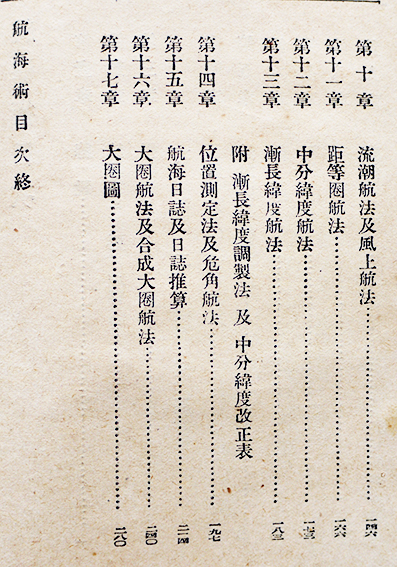 第十章 流潮航法及風上航法 一四六
第十一章 距等圏航法 一六六
第十二章 中分緯度航法 一七三
第十三章 漸長緯度航法 一八三
附 漸長緯度調製法 及 中分緯度改正表
第十四章 位置測定法及危角航法 一九七
第十五章 航海日誌及日誌推算 二一四
第十六章 大圏航法及合成大圏航法 二四〇
第十七章 大圏圖 二八〇
航海術目次終